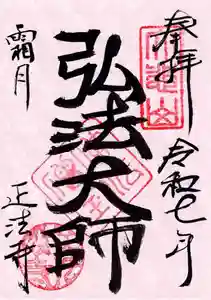 奉拝
令和七年
弘法大師
霜月
正法寺